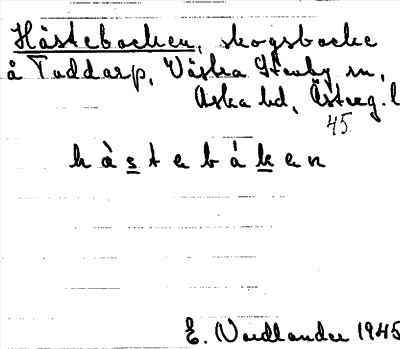 Hästebacken, skogsbacke
å Taddarp, Västra Stenby sn,
Aska hd, Österg. l
45
h à s t e b á k e n
E. Nordlander 1945